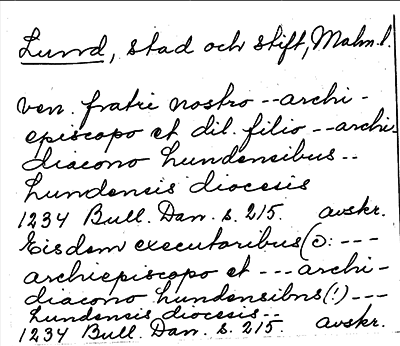 Lund, stad och stift, Malm.l.
ven. fratri nostro -- archi-
episcopo et dil. filio -- archi-
diacono hundensibus --
hundensis diocesis
1234 Bull. Dan. s. 215. avskr.
Eisdem executoribus (ɔ: ---
archiepiscopo et --- archi-
diacono hundensibns (!) ---
hundensis diocesis --
1234 Bull. Dan. s. 215. avskr.